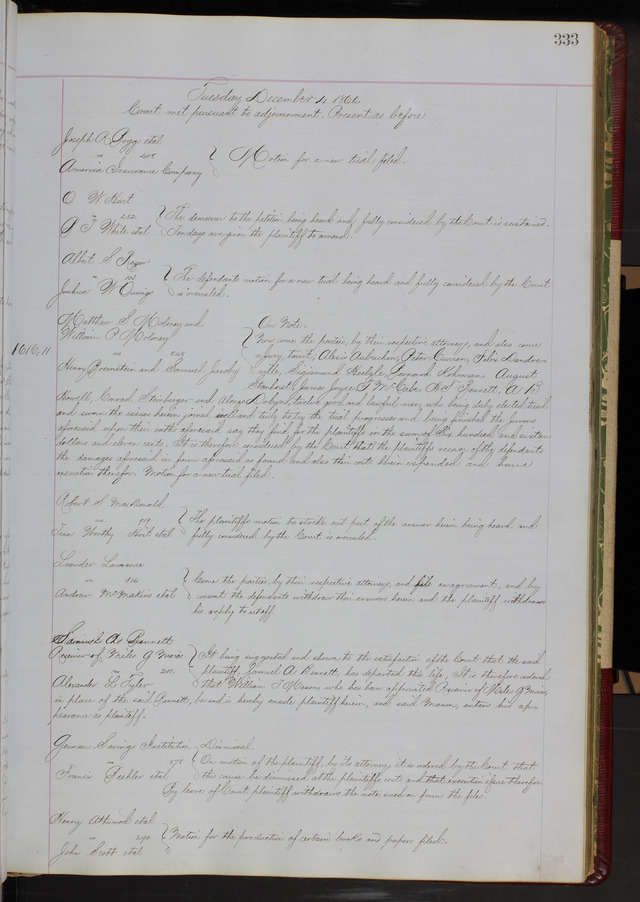 333
Tuesday, December 4, 186
Court met pursuant to adjournment. Present as before
Joseph A. Bryge etal
vs 408
America Insurance Company
Motion for a new trial filed.
O W Hart
vs 232
P T White etal
The demurrer to the petition being heard and fully considered by the Court is sustained.
Ten days are given the plaintiff to amend.
Albert S
vs
Joshua W
The defendants motion for a new trial being heard and fully considered by the Court
is overruled.
Matthew S Molony and
William P Molony
vs 248
Henry Bernstein and Samuel Jacoby
1616,11
On Note.
Now come the parties, by their respective attorneys, and also come
a jury, towit; Alexis Aubuchon, Peter Curran, Felix Dandur-
August
James Joyce, P McCabe, R S Bennett, A B
Howell, Conrad Steinberger and Alonzo twelve good and lawful men, who being duly elected tried
and sworn the issues herein joined well and truly to try the trial progresses and being finished the jurors
aforesaid upon their oaths aforesaid say they find for the plaintiffs in the sum of Six hundred and sixteen
dollars and eleven cents. It is therefore considered by the Court that the plaintiffs recover of the defendants
the damages aforesaid in form aforesaid so found and also their costs herein expended and have
execution therefor. Motion for a new trial filed.
Robert S MacDonald
vs
True Worthy Hoit etal
The plaintiffs motion to strike out part of the answer herein being heard and
fully considered by the Court is overruled.
Leander Lawrence
vs 514
Andrew McMakin etal
Come the parties, by their respective attorneys, and file an agreement, and by
consent the defendants withdraw their answers herein and the plaintiff withdraws
his reply to setoff
Samuel A Bennett
Receiver of Miles G Moies
vs 211
Alexander L Tyler
It being suggested and shown to the satisfaction of the Court that the said
plaintiff, Samuel A Bennett, has departed this life, It is therefore ordered
that William T Mason, who has been appointed Receiver of Miles G Moies,
in place of the said Bennett, be and is hereby made plaintiff herein, and said Mason, enters his app-
earance as plaintiff.
German Savings Institution
vs 571
Francis etal
Dismissal.
On motion of the plaintiff, by its attorney, it is ordered by the Court that
this cause be dismissed at the plaintiffs costs and that execution issue therefor.
By leave of Court plaintiff withdraws the note sued on from the file.
Henry Attwood etal
vs 290
John Scott etal
Motion for the production of certain books and papers filed.